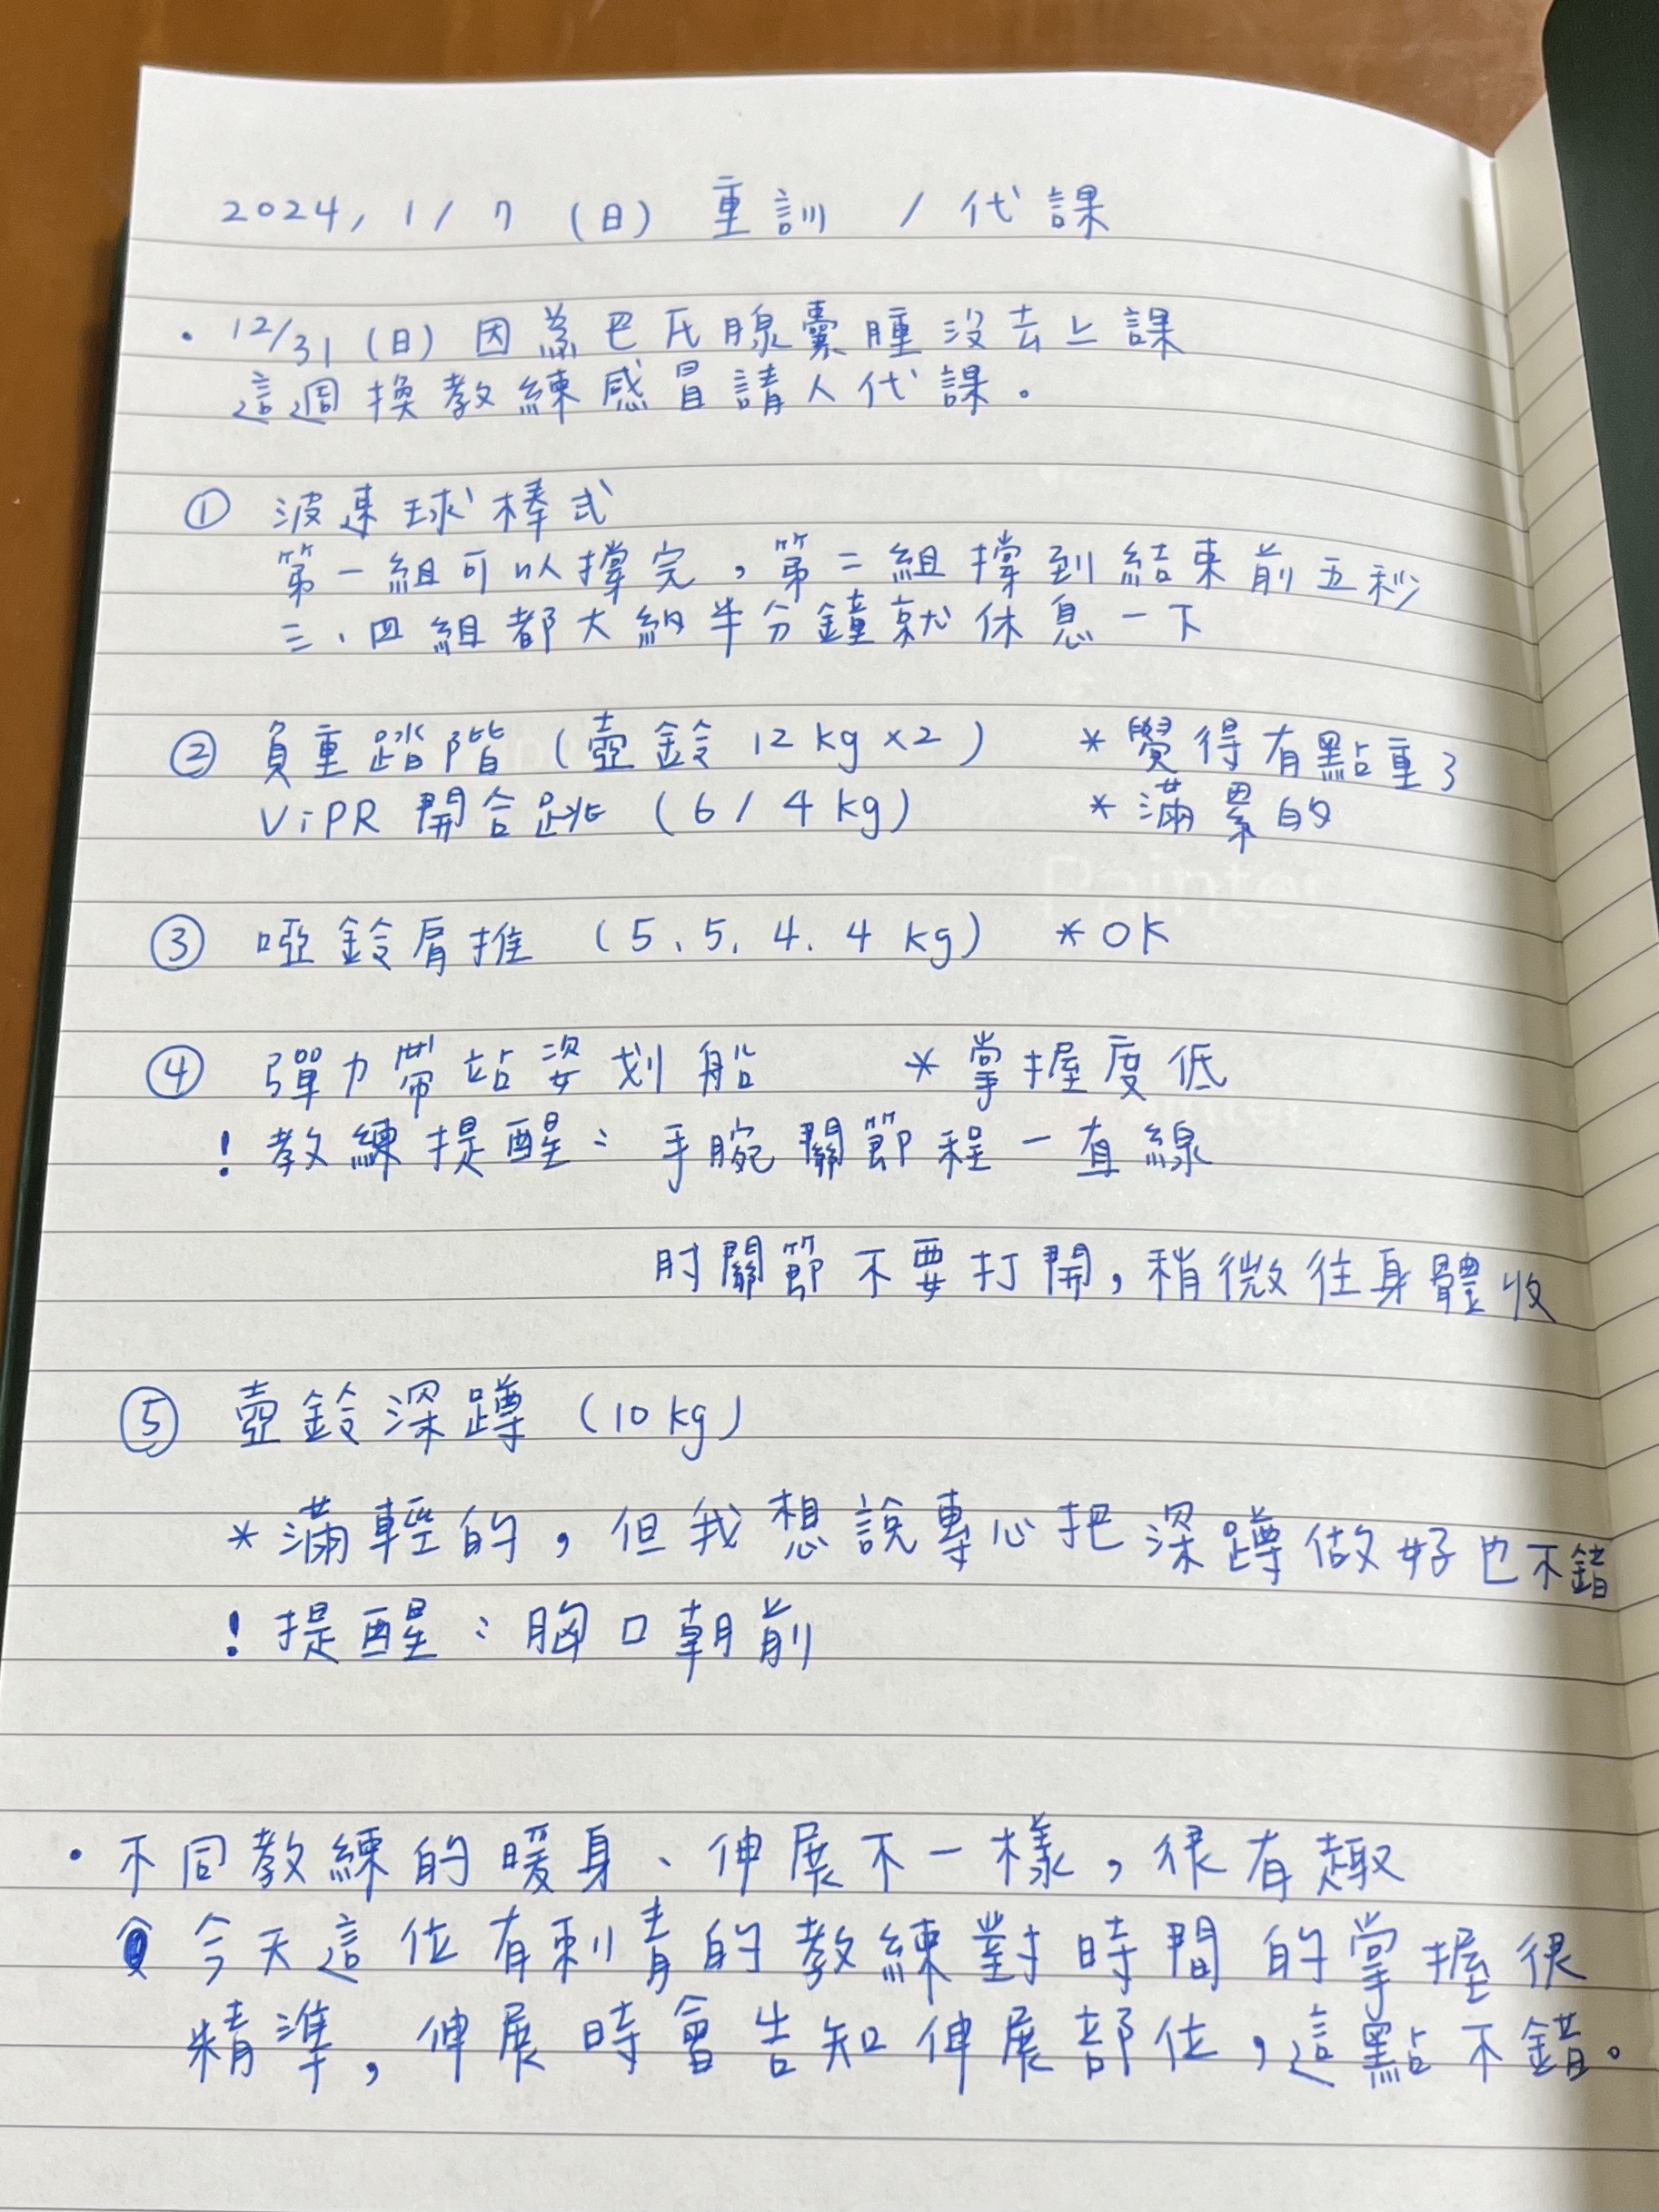 2024, 1/7 (日) 重訓 / 代課
· 12/31 (日) 因為巴氏腺囊腫沒去上課
這週換教練感冒請人代課。
① 波速球棒式
第一組可以撐完，第二組撐到結束前五秒
三、四組都大約半分鐘就休息一下
② 負重踏階 (壺鈴 12kg x2) *覺得有點重了
ViPR 開合跳 (6/4kg) *滿累的
③ 啞鈴肩推 (5、5、4、4 kg) *OK
④ 彈力帶站姿划船 *掌握度低
! 教練提醒：手腕關節程一直線
肘關節不要打開，稍微往身體收
⑤ 壺鈴深蹲 (10kg)
*滿輕的，但我想說專心把深蹲做好也不錯
! 提醒：胸口朝前
· 不同教練的暖身、伸展不一樣，很有趣
今天這位有刺青的教練對時間的掌握很
精準，伸展時會告知伸展部位，這點不錯。